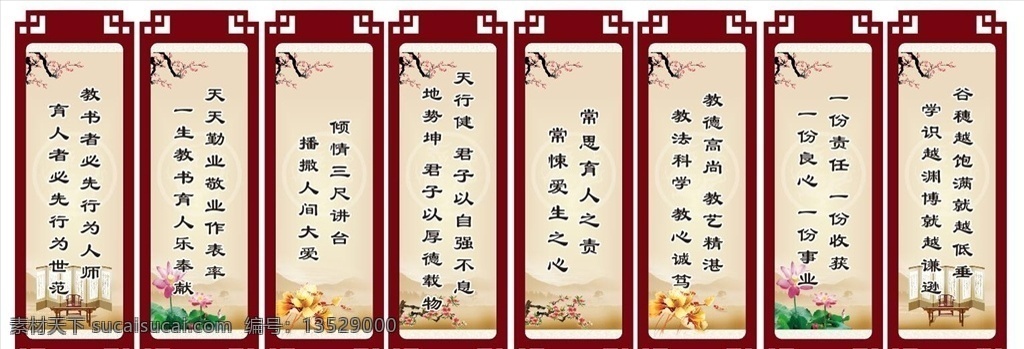 教书者必先行为人师
育人者必先行为世范
天天勤业敬业作表率
一生教书育人乐奉献
倾情三尺讲台
播撒人间大爱
天行健 君子以自强不息
地势坤 君子以厚德载物
常思育人之责
常悚爱生之心
教德高尚 教艺精湛
教法科学 教心诚笃
一份责任 一份收获
一份良心 一份事业
谷穗越饱满就越低垂
学识越渊博就越谦逊
素材天下 sucaisucai.com 编号：13529000